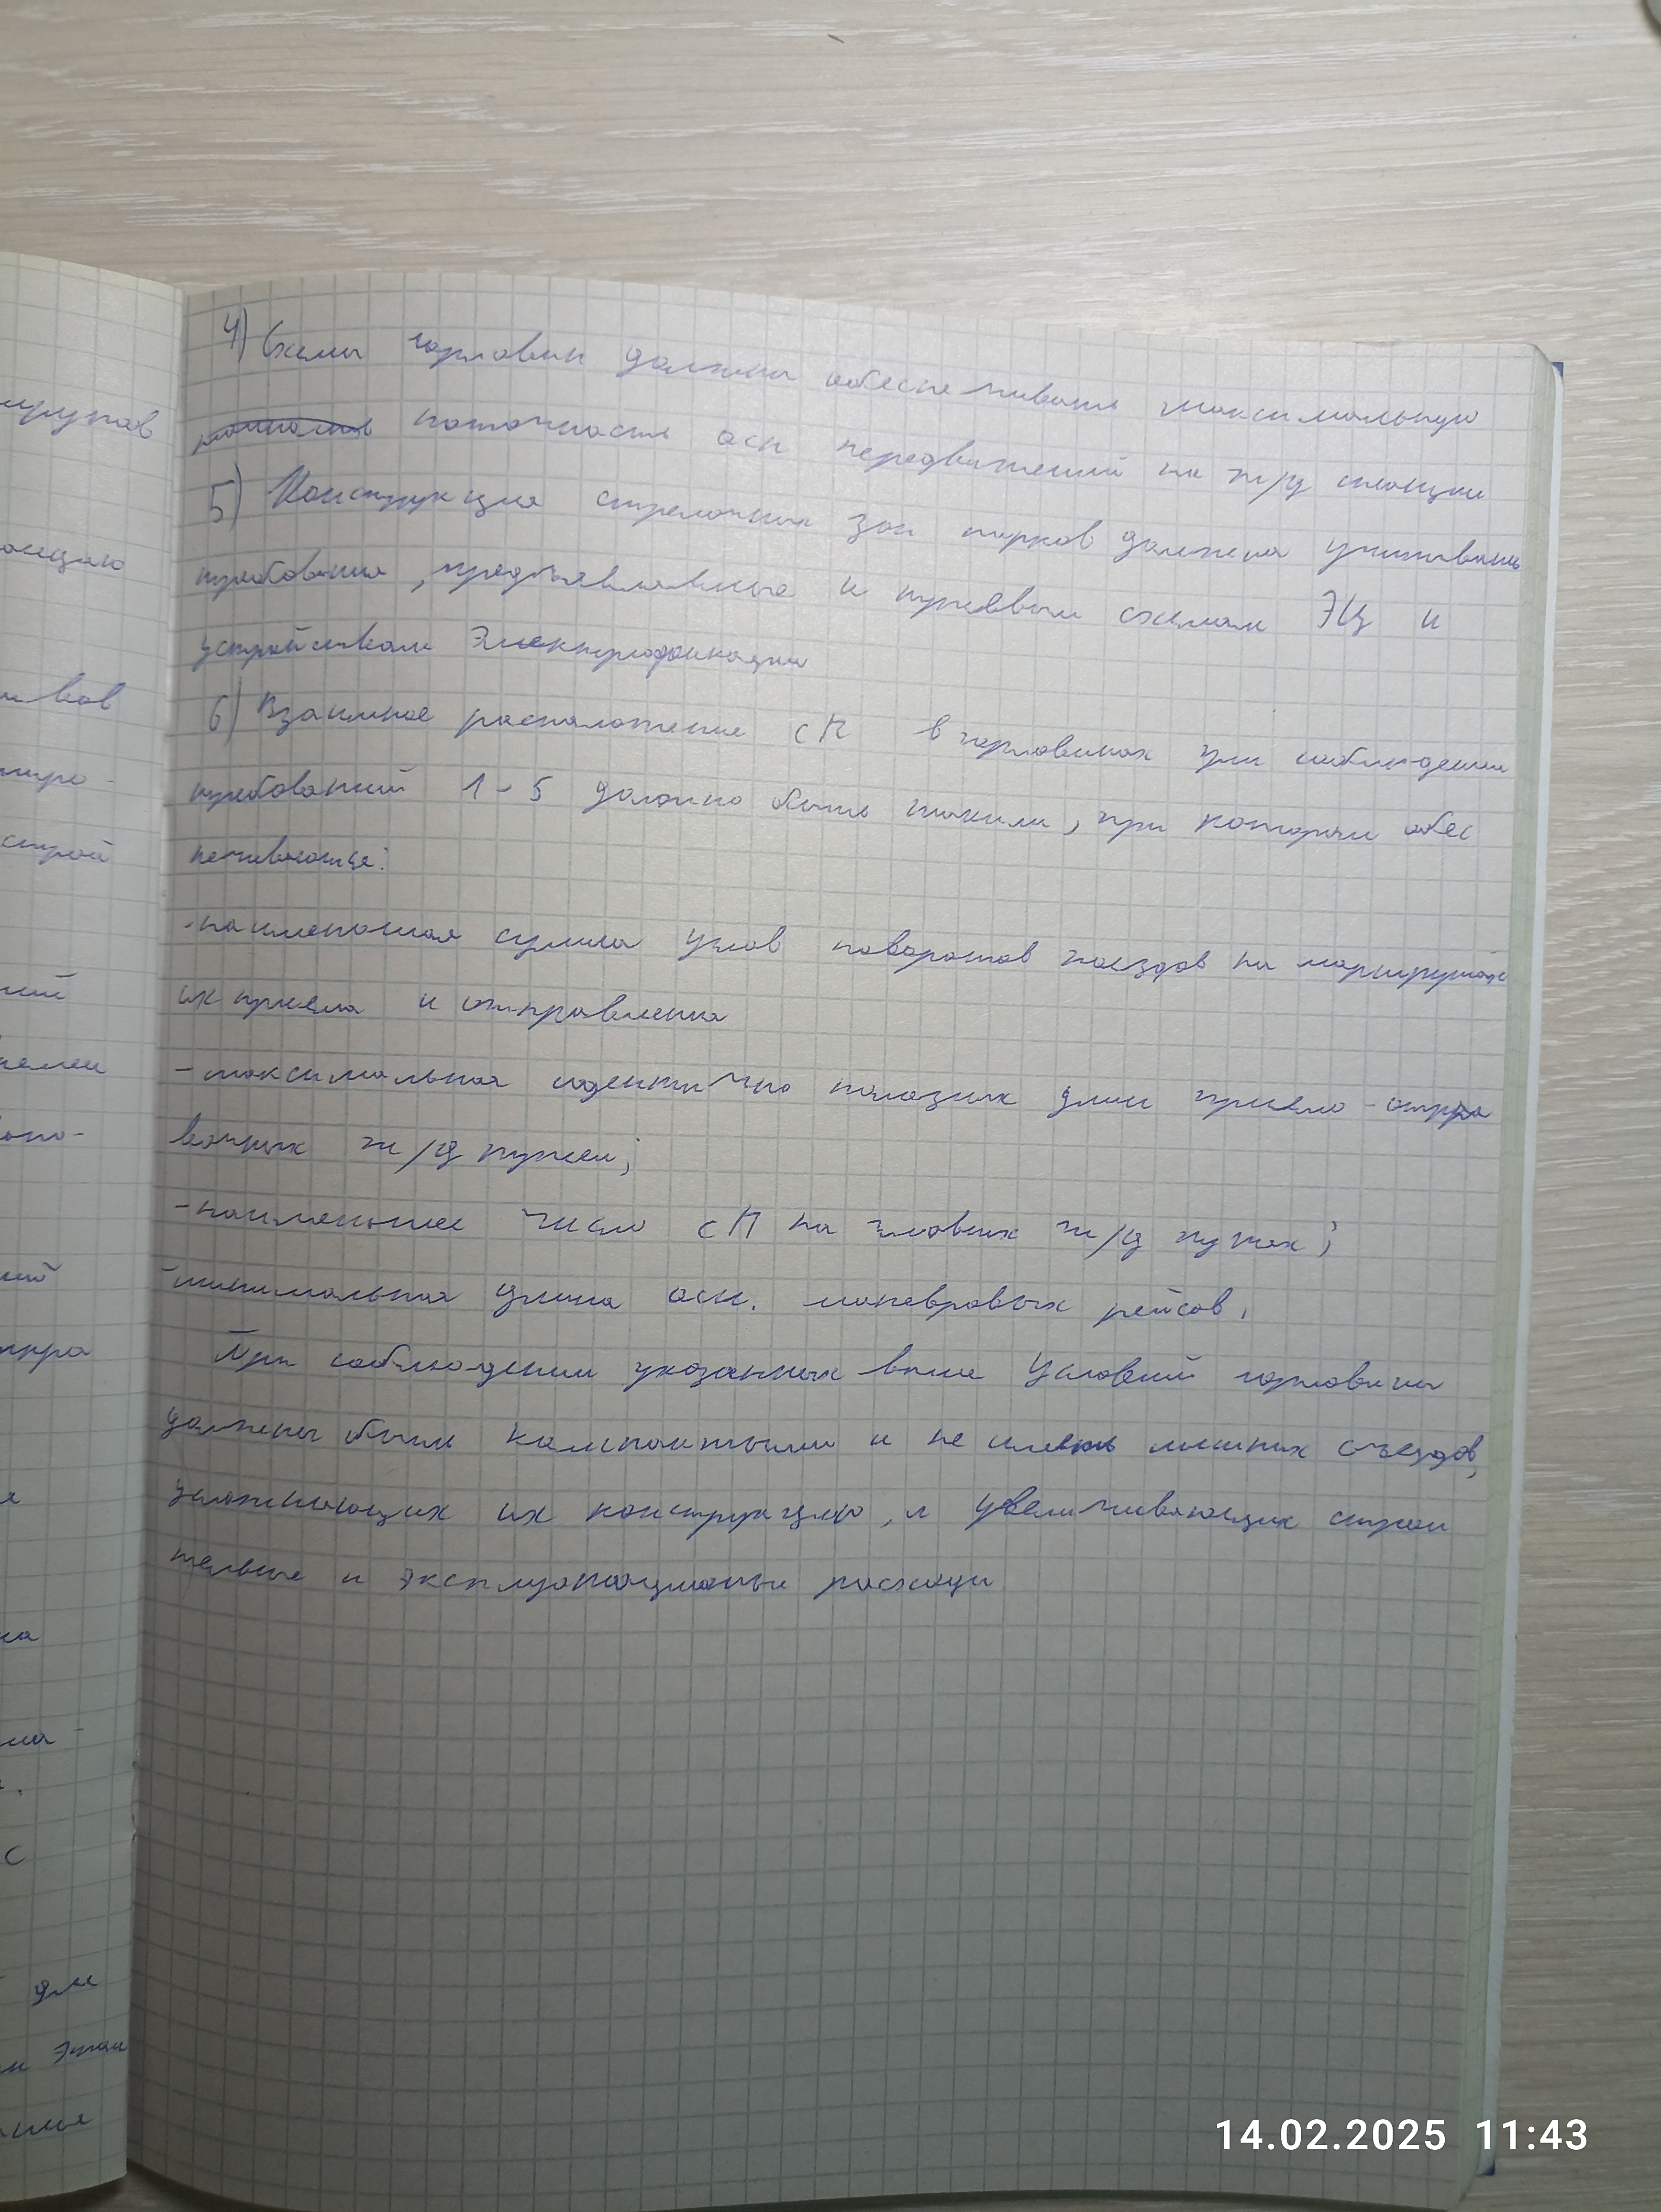 4) Схемы горловин должны обеспечивать максимальную
поточность осн передвижений на ж/д станции
5) Конструкция стрелочных зон парков должна учитывать
требования, предъявляемые к путевым схемам ЭЦ и
устройствам Электрофикации
6) Взаимное расположение СП в горловинах при соблюдении
требований 1-5 должно быть такими, при котором обес
печиваются:
-наименьшая сумма углов поворотов поездов на маршрутах
их приема и отправления
-максимальная идентично полезных длин приемо-отпра
вочных ж/д путей;
-наименьшее число СП на главных ж/д путях;
-минимальная длина осн. маневровых рейсов.
При соблюдении указанных выше условий горловины
должны быть компактными и не иметь лишних съездов,
усложняющих их конструкцию, и увеличивающих строи
тельные и эксплуатационные расходы
маршрутов
ивов
строй
для
этом
14.02.2025 11:43